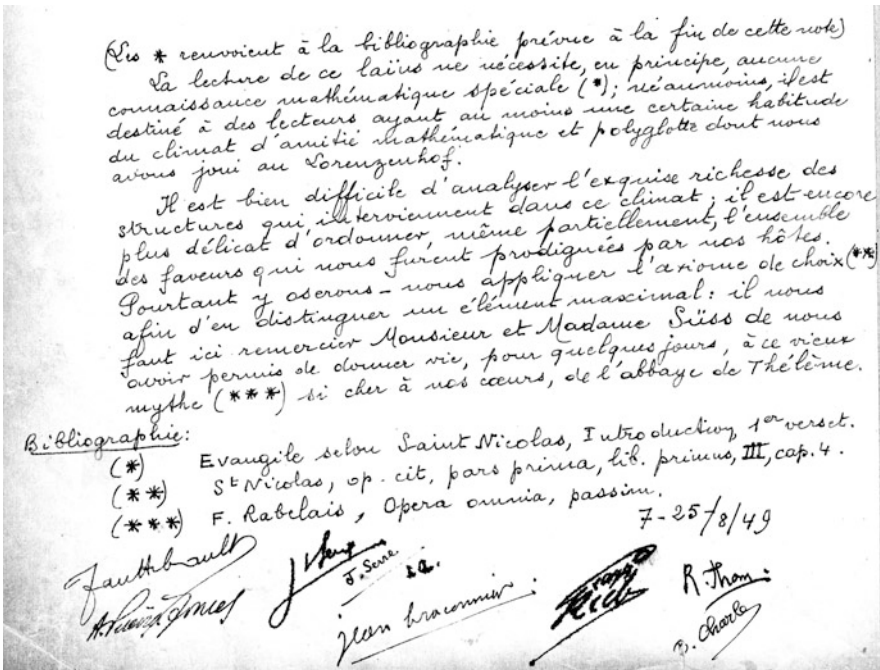 (Les * renvoient à la bibliographie prévue à la fin de cette note)
La lecture de ce laïus ne nécessite, en principe, aucune
connaissance mathématique spéciale (*); néanmoins, il est
destiné à des lecteurs ayant au moins une certaine habitude
du climat d'amitié mathématique et polyglotte dont nous
avons joui au Lorenzenhof.
Il est bien difficile d'analyser l'exquise richesse des
structures qui interviennent dans ce climat; il est encore
plus délicat d'ordonner, même partiellement, l'ensemble
des faveurs qui nous furent prodiguées par nos hôtes.
Pourtant y oserons-nous appliquer l'axiome de choix (**)
afin d'en distinguer un élément maximal: il nous
faut ici remercier Monsieur et Madame Süss de nous
avoir permis de donner vie, pour quelques jours, à ce vieux
mythe (***) si cher à nos cœurs, de l'abbaye de Thélème.
Bibliographie:
(*) Evangile selon Saint Nicolas, Introduction, 1er verset.
(**) St Nicolas, op. cit. pars prima, lib. primus, III, cap. 4.
(***) F. Rabelais, Opera omnia, passim.
7-25/8/49
J. Serre
jean braconnier
R. Thom